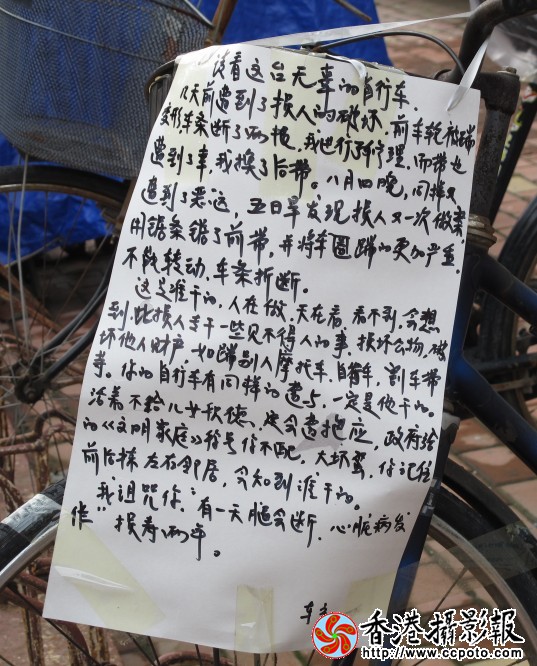 请看这台无辜的自行车.
几天前遭到了损人的破坏. 前车轮被踹
变形,车条断了两根,我进行了修理.而带也
遭到了车,我换了后带。八月四晚,同样又
遭到了恶运,五日早发现损人又一次做案
用锯条锯了前带,并将车圈踹的更加严重.
不能转动.车条折断。
这是谁干的,人在做,天在看 看不到,会想
到.此损人专干一些见不得人的事,损坏公物,破
坏他人财产,如踹别人摩托车.自行车,割车带
等.你的自行车有同样的遭遇一定是他干的。
活着不给儿女积德,定会遭抱应 政府给
的《文明家庭》称号你不配.大坏蛋,你记住
前后栋左右邻居,会知到谁干的.
我诅咒你"有一天腿会断,心脏病发
作" 损寿两年。
车主
香港攝影報
http://www.ccpoto.com